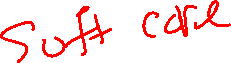 Soft care